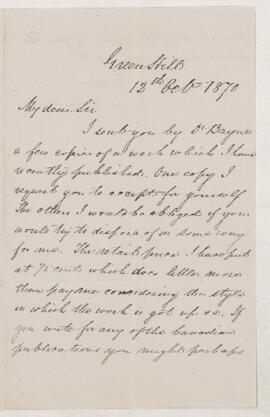 Green Hill
12th Octr 1870
My dear Sir
I sent you by Dr. Bayne
a few copies of a work which I have
recently published. One copy I
request you to accept for yourself
The others I would be obliged if you
would try to dispose of in some way
for me. The retail price I have put
at 75 cents which does little more
than pay me considering the style
in which the work is got up &c. If
you write for any of the Canadian
publications you might perhaps